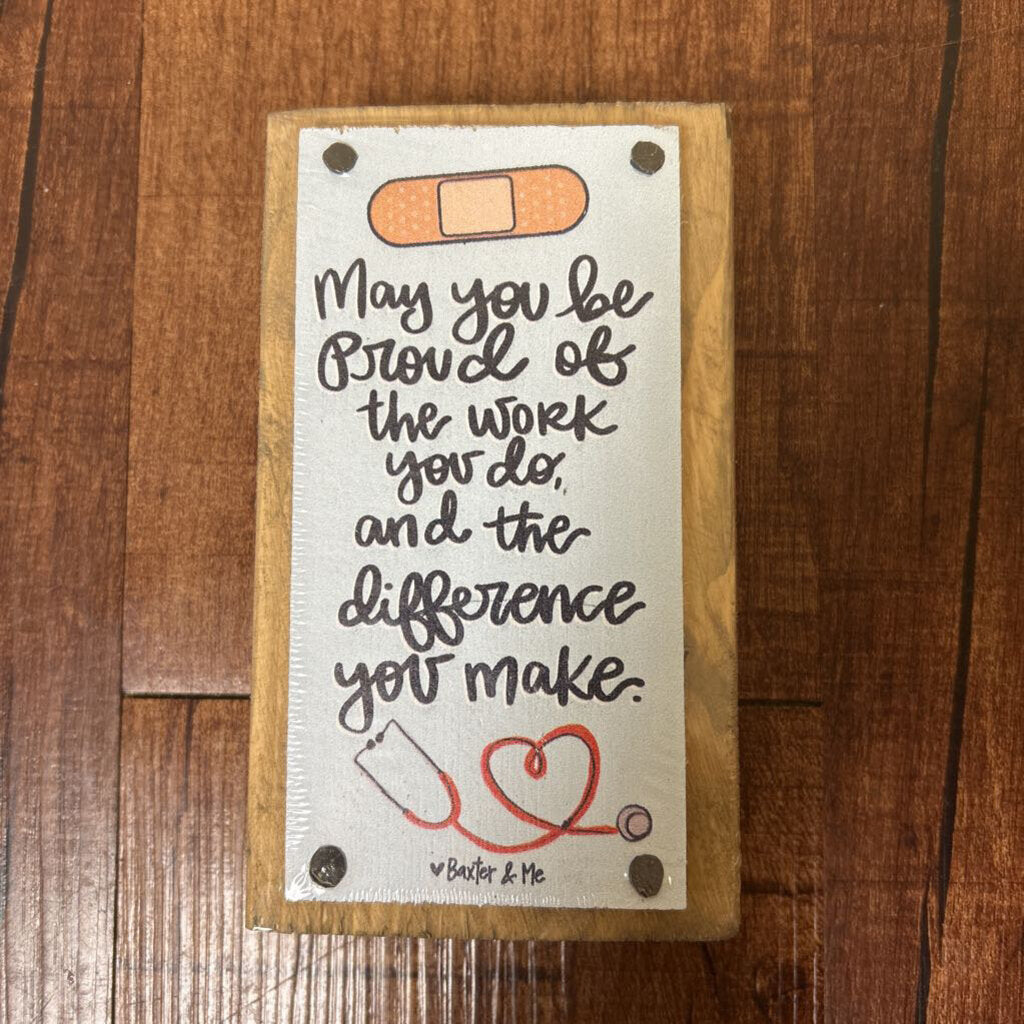 May you be
Proud of
the work
you do,
and the
difference
you make.
♥Baxter & Me